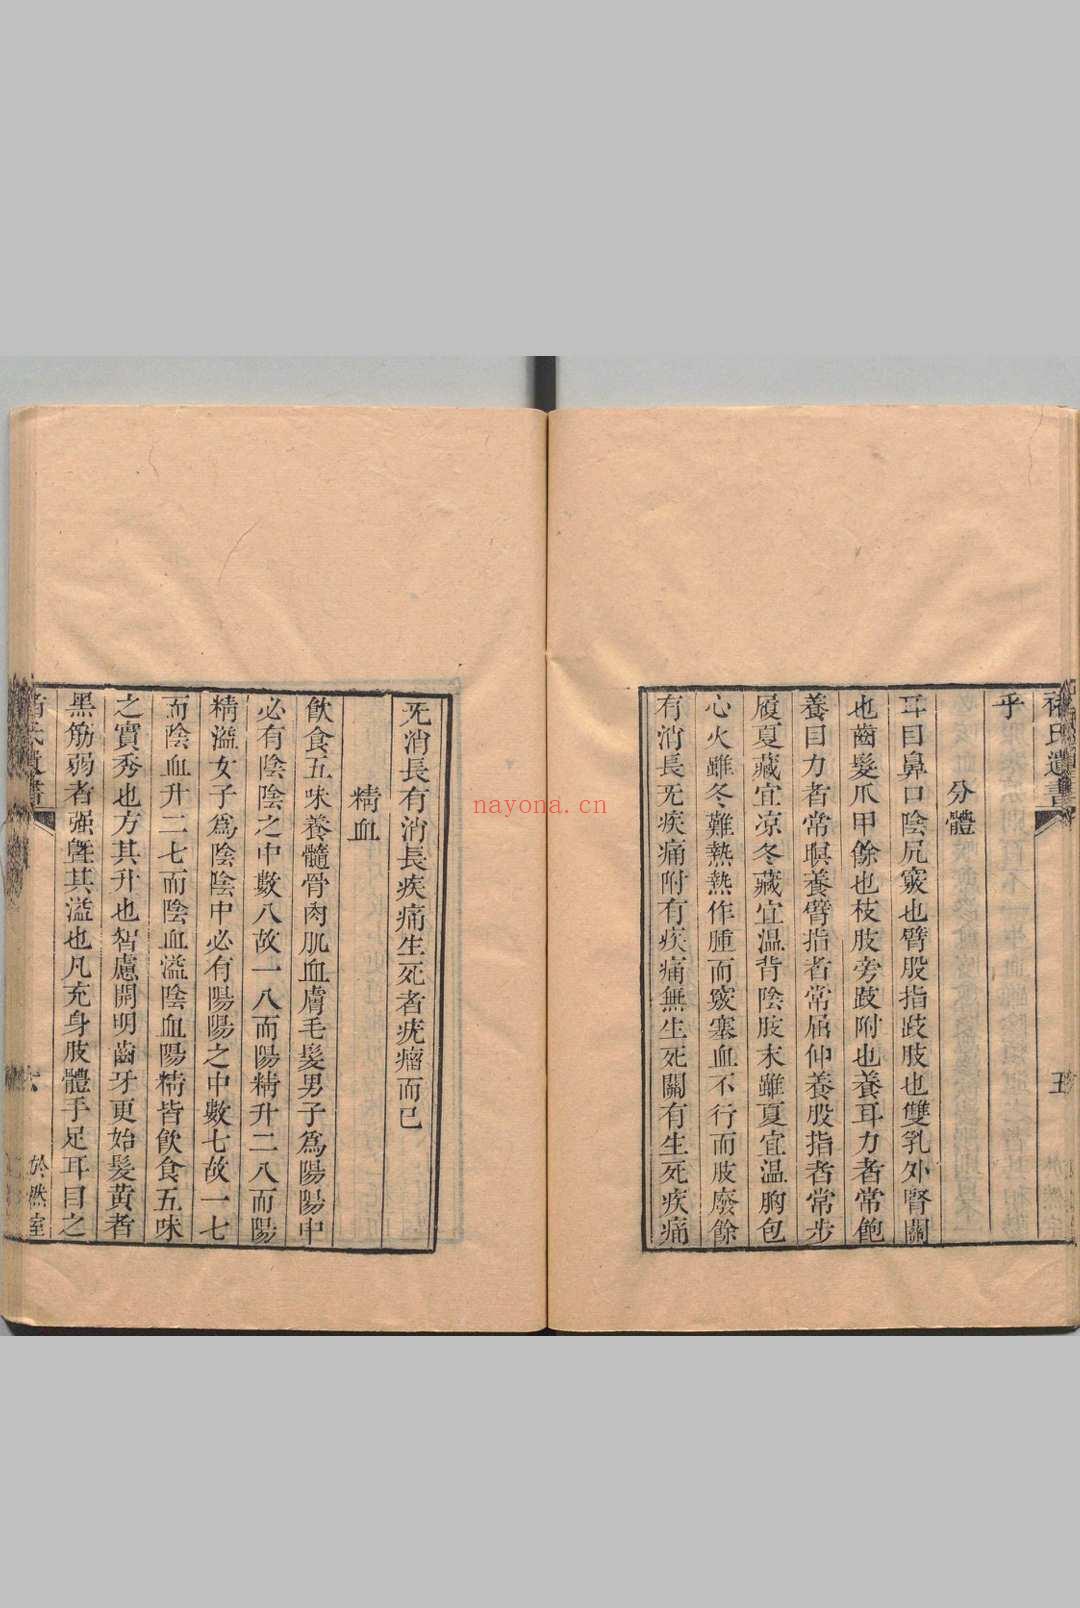 褚氏遺書
五
乎
分體
耳目鼻口陰尻竅也臂股指跂肢也雙乳外腎關
也齒髮爪甲餘也枝肢旁跂附也養耳力者常飽
養目力者常瞑養臂指者常屈伸養股指者常步
履夏藏宜凉冬藏宜温背陰肢末雖夏宜温胸包
心火雖冬難熱熱作腫而竅塞血不行而肢廢餘
有消長无疾痛附有疾痛無生死關有生死疾痛
nayona.cn
无消長有消長疾痛生死者疣瘤而已
精血
飲食五味養髓骨肉肌血膚毛髮男子爲陽陽中
必有陰陰之中數八故一八而陽精升二八而陽
精溢女子爲陰陰中必有陽陽之中數七故一七
而陰血升二七而陰血溢陰血陽精皆飲食五味
之實秀也方其升也智慮開明齒牙更始髮黄者
黑筋弱者强曁其溢也凡充身肢體手足耳目之
氏遺書
六
於然室